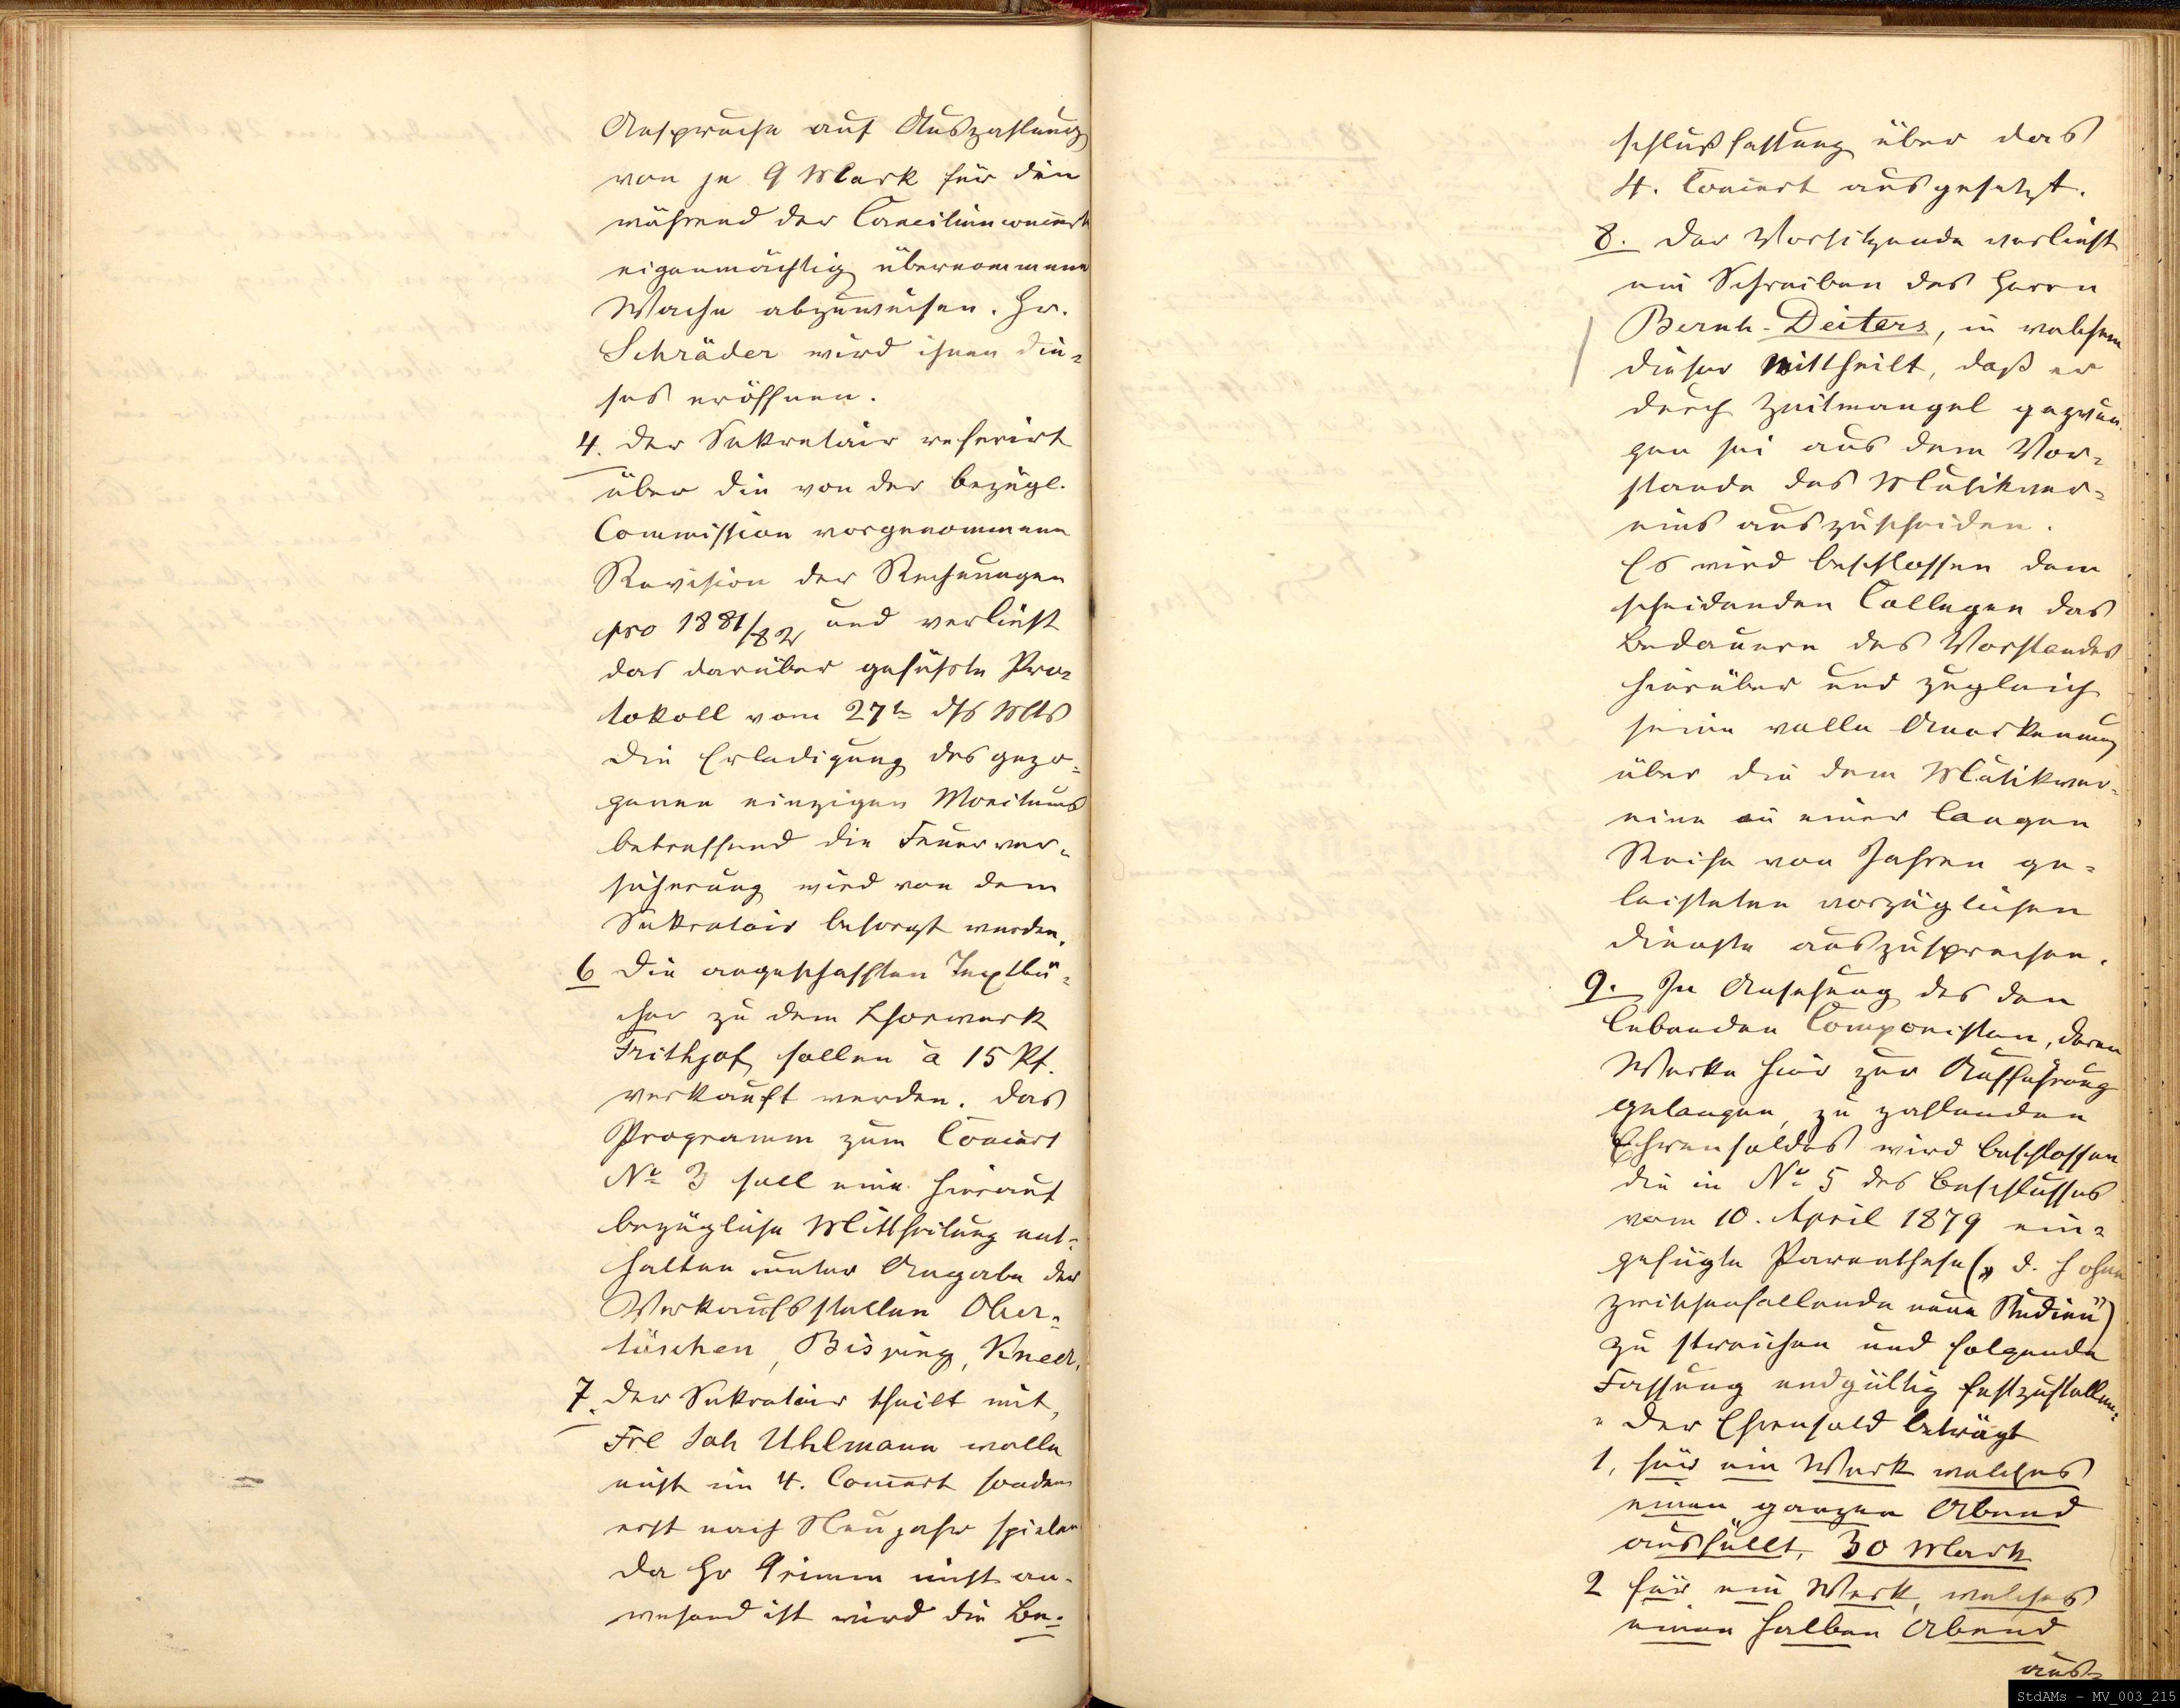 Ansprüche auf Auszahlung
von je 9 Mark für die
während der Caecilienconcerte
eigenmächtig übernommene
Wache abzuweisen. Hr.
Schräder wird ihnen die-
ses eröffnen.
4. Der Sekretair referirt
über die von der bezügl.
Commission vorgenommene
Revision der Rechnungen
pro 1881/82 und verliest
das darüber geführte Pro-
tokoll vom 27t dss Mts
Die Erledigung des gezo-
genen einzigen Monitums
betreffend die Feuerver-
sicherung wird von dem
Sekretair besorgt werden.
6 Die angeschafften Textbü-
cher zu dem Chorwerk
Frithjof sollen à 15 Pf.
verkauft werden. Das
Programm zum Concert
No 3 soll eine hierauf
bezügliche Mittheilung ent-
halten unter Angabe der
Verkaufsstellen Ober-
tüschen, Bisping, Kneer.
7. Der Sekretair theilt mit,
Frl Joh Uhlmann wolle
nicht im 4. Concert sondern
erst nach Neujahr spielen
da Hr Grimm nicht an-
wesend ist wird die Be-
schlußfassung über das
4. Concert ausgesetzt.
8. Der Vorsitzende verliest
ein Schreiben des Herrn
Bernh. Deiters, in welchem
dieser mittheilt, daß er
durch Zeitmangel gezwun-
gen sei aus dem Vor-
stande des Musikver-
eins auszuscheiden.
Es wird beschlossen dem
scheidenden Collegen das
Bedauern des Vorstandes
hierüber und zugleich
seine volle Anerkennung
über die dem Musikver-
eine in einer langen
Reihe von Jahren ge-
leisteten vorzüglichen
Dienste auszusprechen.
9. In Ansehung des den
lebenden Componisten, deren
Werke hier zur Aufführung
gelangen, zu zahlenden
Ehrensoldes wird beschlossen
die in No 5 des Beschlusses
vom 10. April 1879 ein-
gefügte Parenthese („ d. h ohne
zwischenfallende neue Studien")
zu streichen und folgende
Fassung endgültig festzustellen:
" Der Ehrensold beträgt
1, für ein Werk welches
einen ganzen Abend
ausfüllt, 30 Mark
2 für ein Werk, welches
einen halben Abend
aus-
StdAMs - MV_003_215